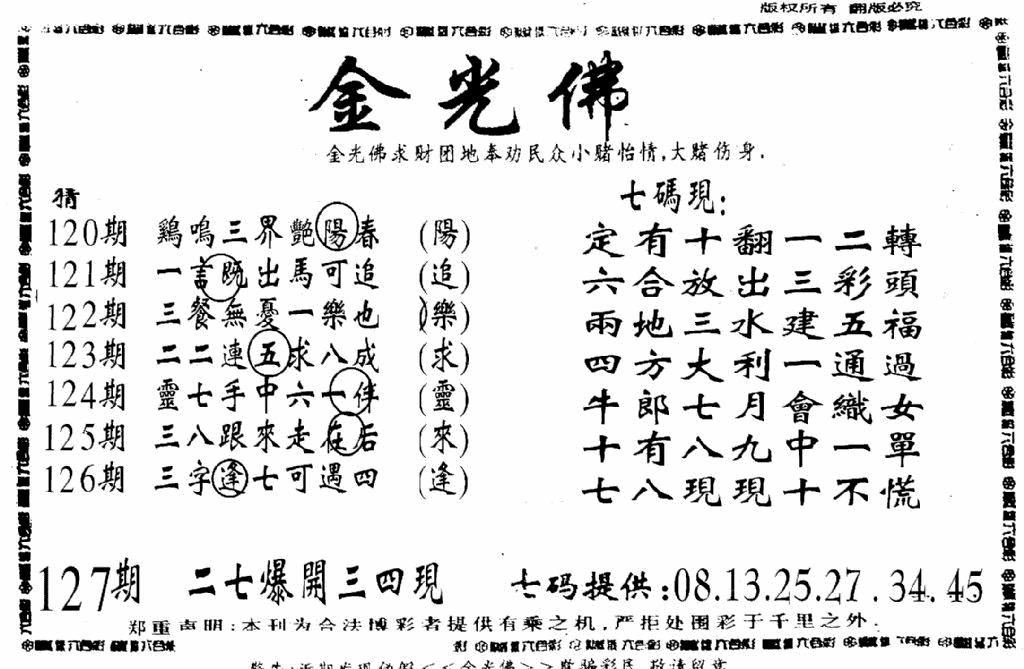 版权所有 翻版必究
金光佛
金光佛求财团地奉劝民众小赌怡情,大赌伤身.
猜
120期 鷄鳴三界艷陽春 (陽)
121期 一言既出馬可追 (追)
122期 三餐無憂一樂也 (樂)
123期 二二連五求八成 (求)
124期 靈七手中六一伴 (靈)
125期 三八跟來走在后 (來)
126期 三字逢七可遇四 (逢)
七碼現:
定有十翻一二轉
六合放出三彩頭
兩地三水建五福
四方大利一通過
牛郎七月會織女
十有八九中一單
七八現現十不慌
127期 二七爆開三四現 七码提供:08.13.25.27.34.45
郑重声明:本刊为合法博彩者提供有乘之机,严拒处围彩于千里之外.